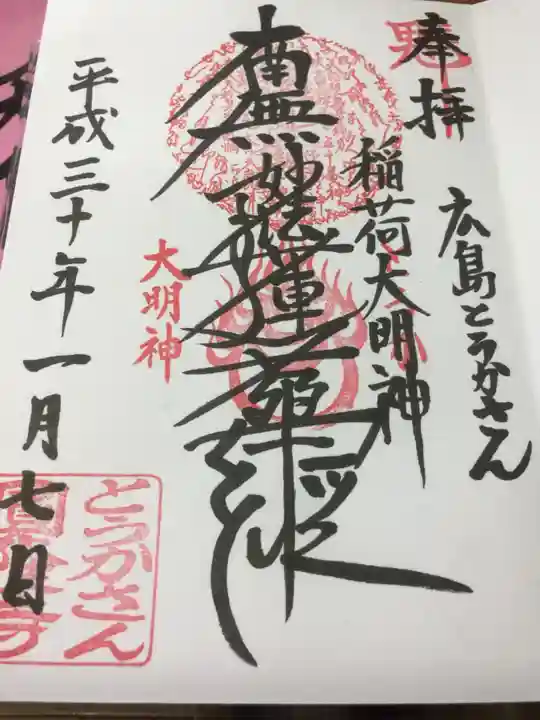 奉拝
広島とうかさん
稲荷大明神
南無妙法蓮華経
大明神
平成三十年一月七日
とうかさん